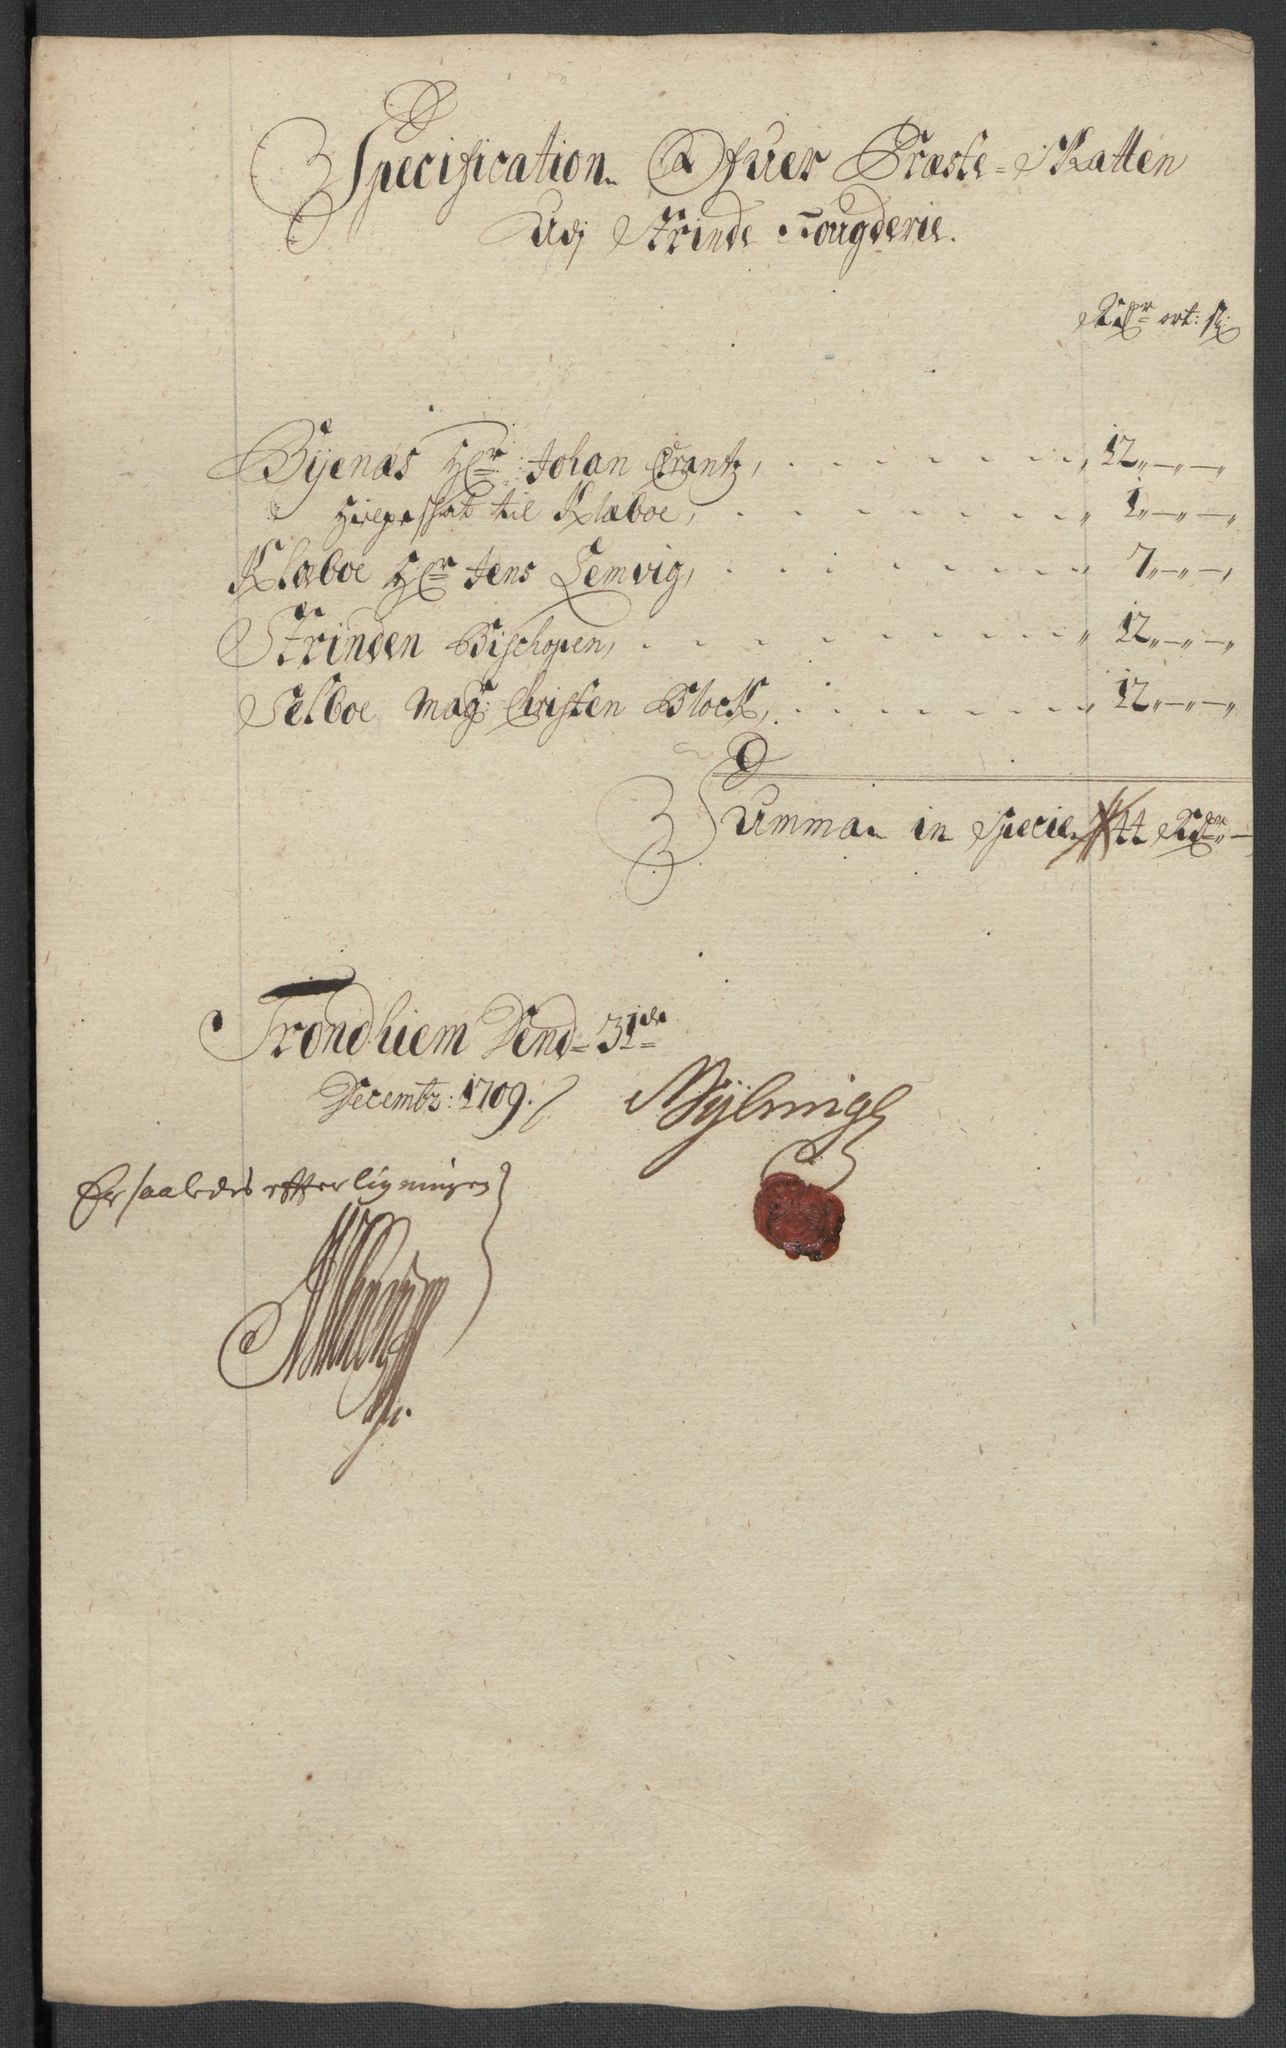 Specification Ofuer Præste-Skatten
Udj Strinde Fougderie.
Rdr ort: sk
Byenæs Hr: Johan Crantz, 12,,—,,—,,
til Klæboe, 1,,—,,—,,
Klæboe Hr Jens Lemvig, 7,,—,,—,,
Strinden Bischopen, 12,,—,,—,,
Selboe Mag: Christen Block, 12,,—,,—,,
Summa in Specie 44 Rdr,,—
Trondhiem Dend 31de
Decembr: 1709.
Er saaledes efter ligningen